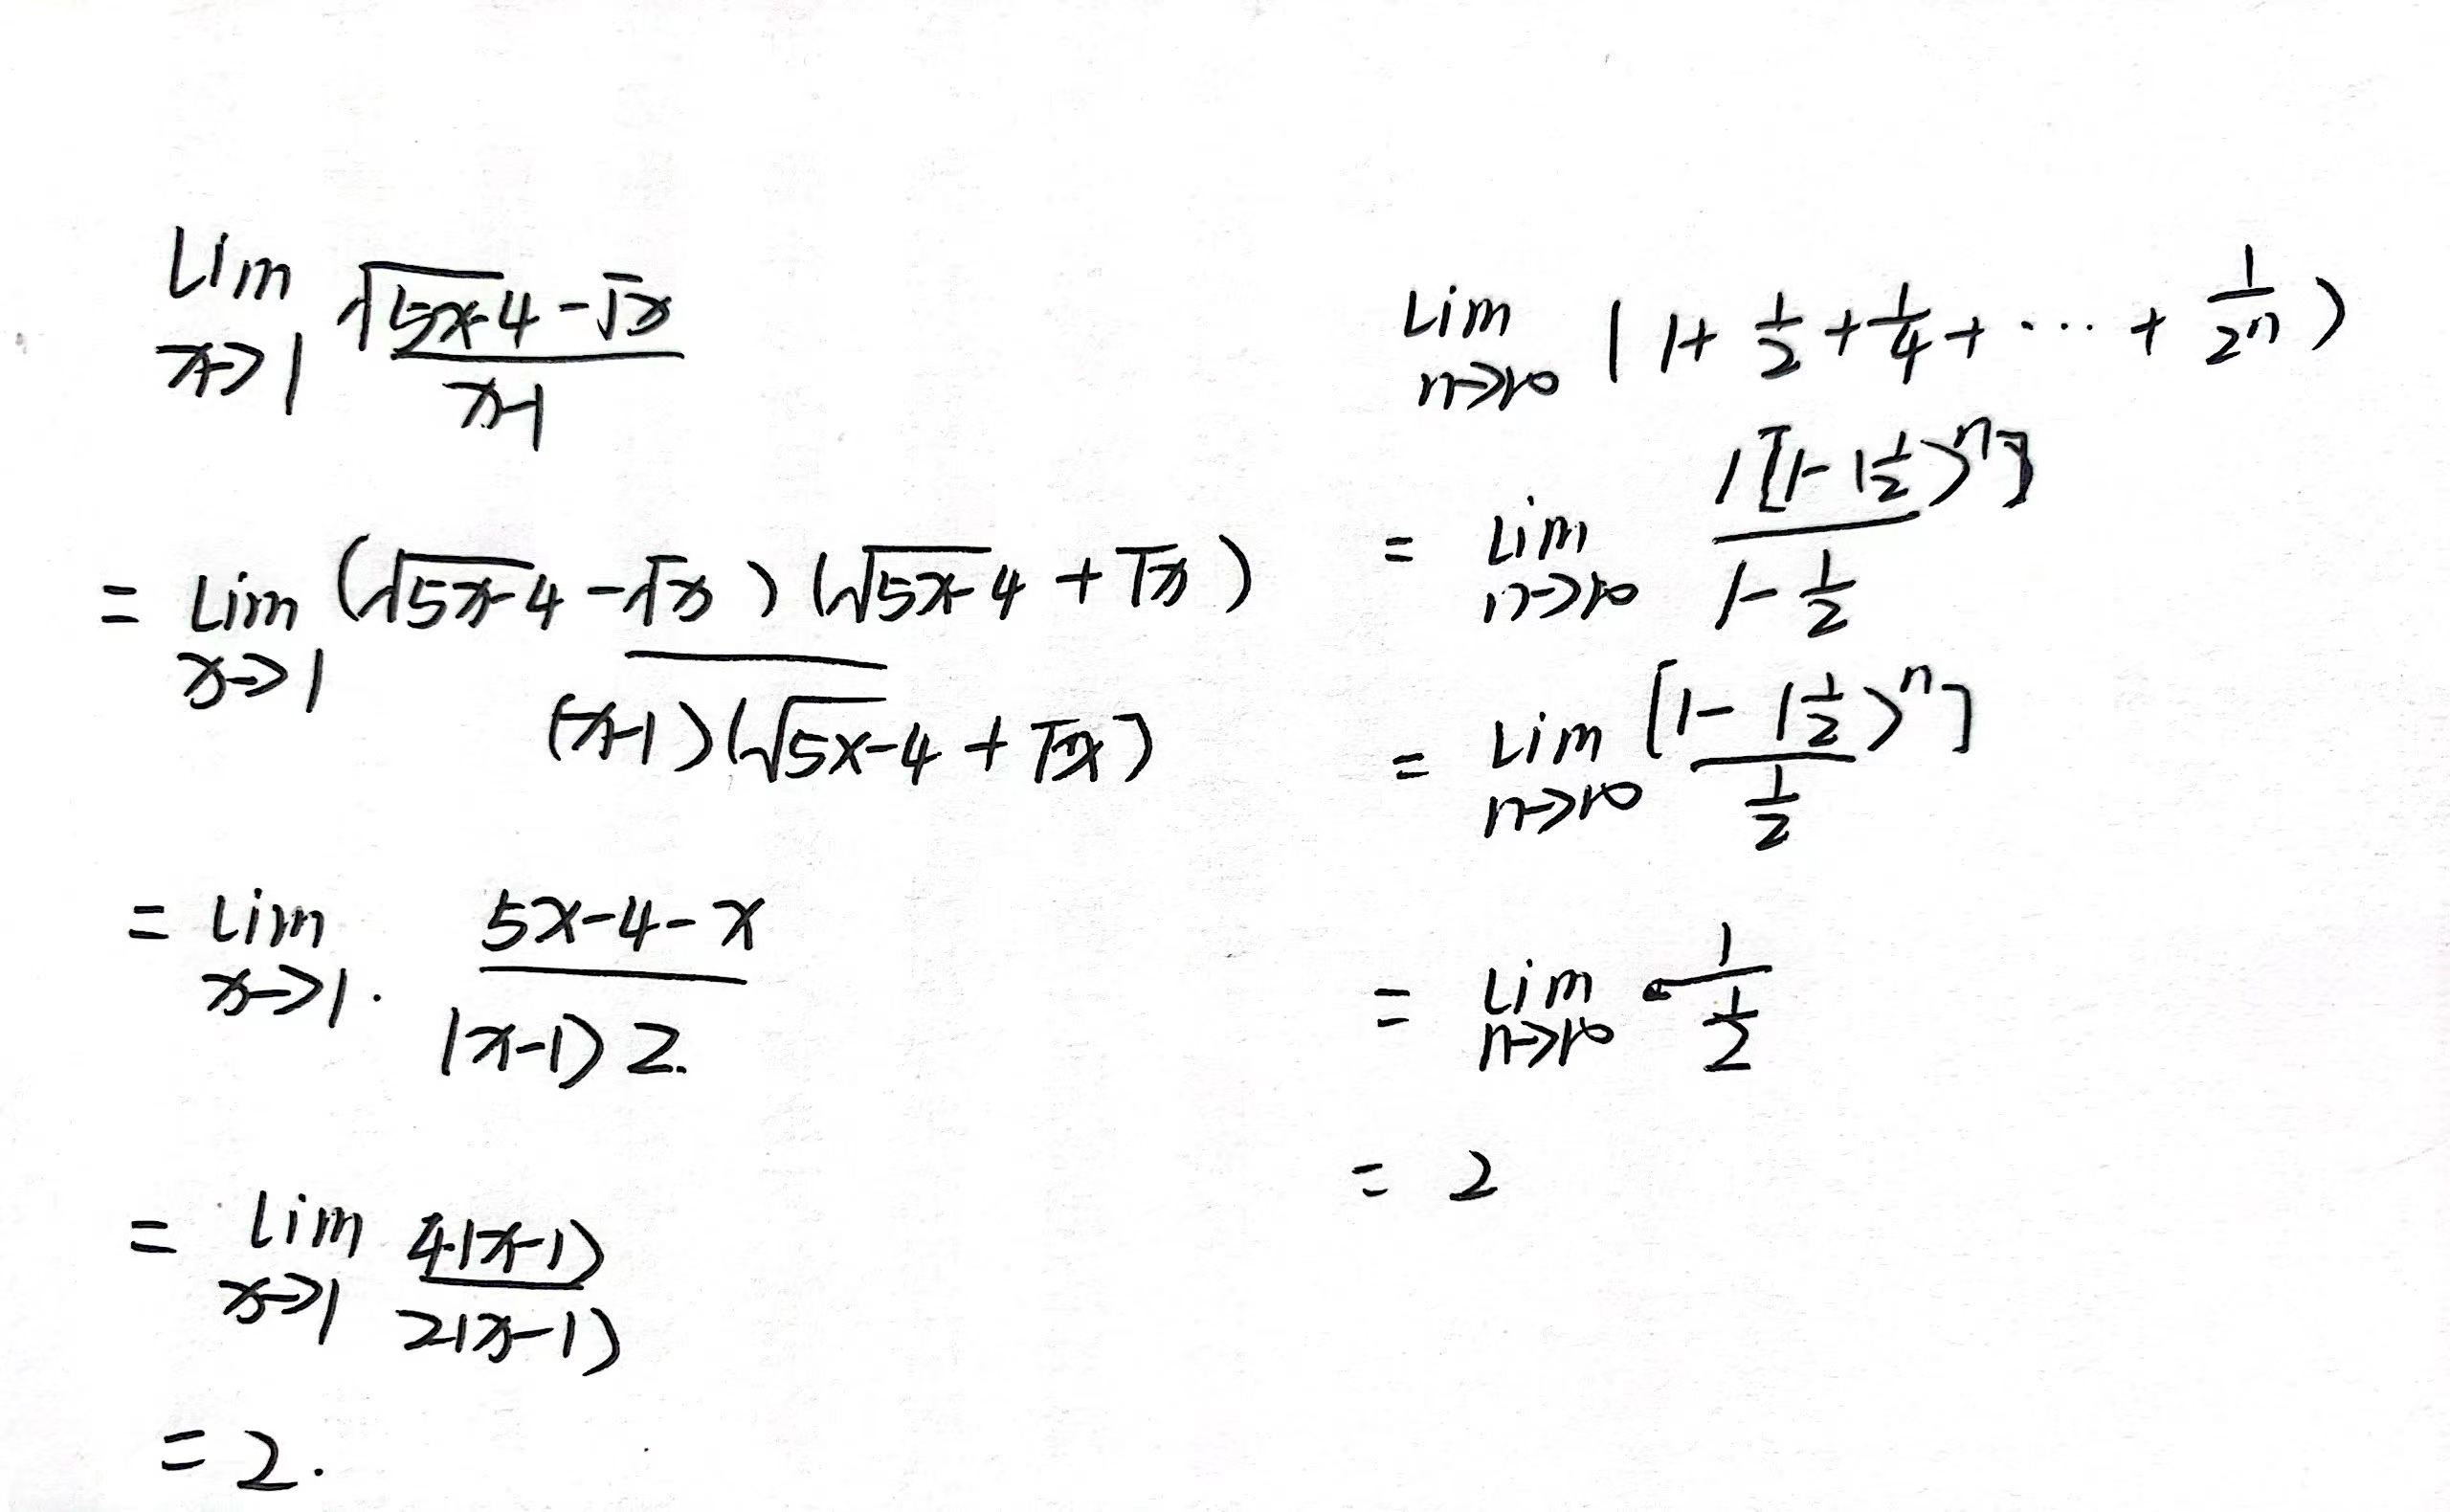 lim_{x→1} \frac{\sqrt{5x-4}-\sqrt{x}}{x-1}
= lim_{x→1} \frac{(\sqrt{5x-4}-\sqrt{x})(\sqrt{5x-4}+\sqrt{x})}{(x-1)(\sqrt{5x-4}+\sqrt{x})}
= lim_{x→1} \frac{5x-4-x}{(x-1)2}
= lim_{x→1} \frac{4(x-1)}{2(x-1)}
= 2.
lim_{n→∞} (1+\frac{1}{2}+\frac{1}{4}+⋯+\frac{1}{2^n})
= lim_{n→∞} \frac{1[1-(\frac{1}{2})^n]}{1-\frac{1}{2}}
= lim_{n→∞} \frac{[1-(\frac{1}{2})^n]}{\frac{1}{2}}
= lim_{n→∞} \frac{1}{\frac{1}{2}}
= 2